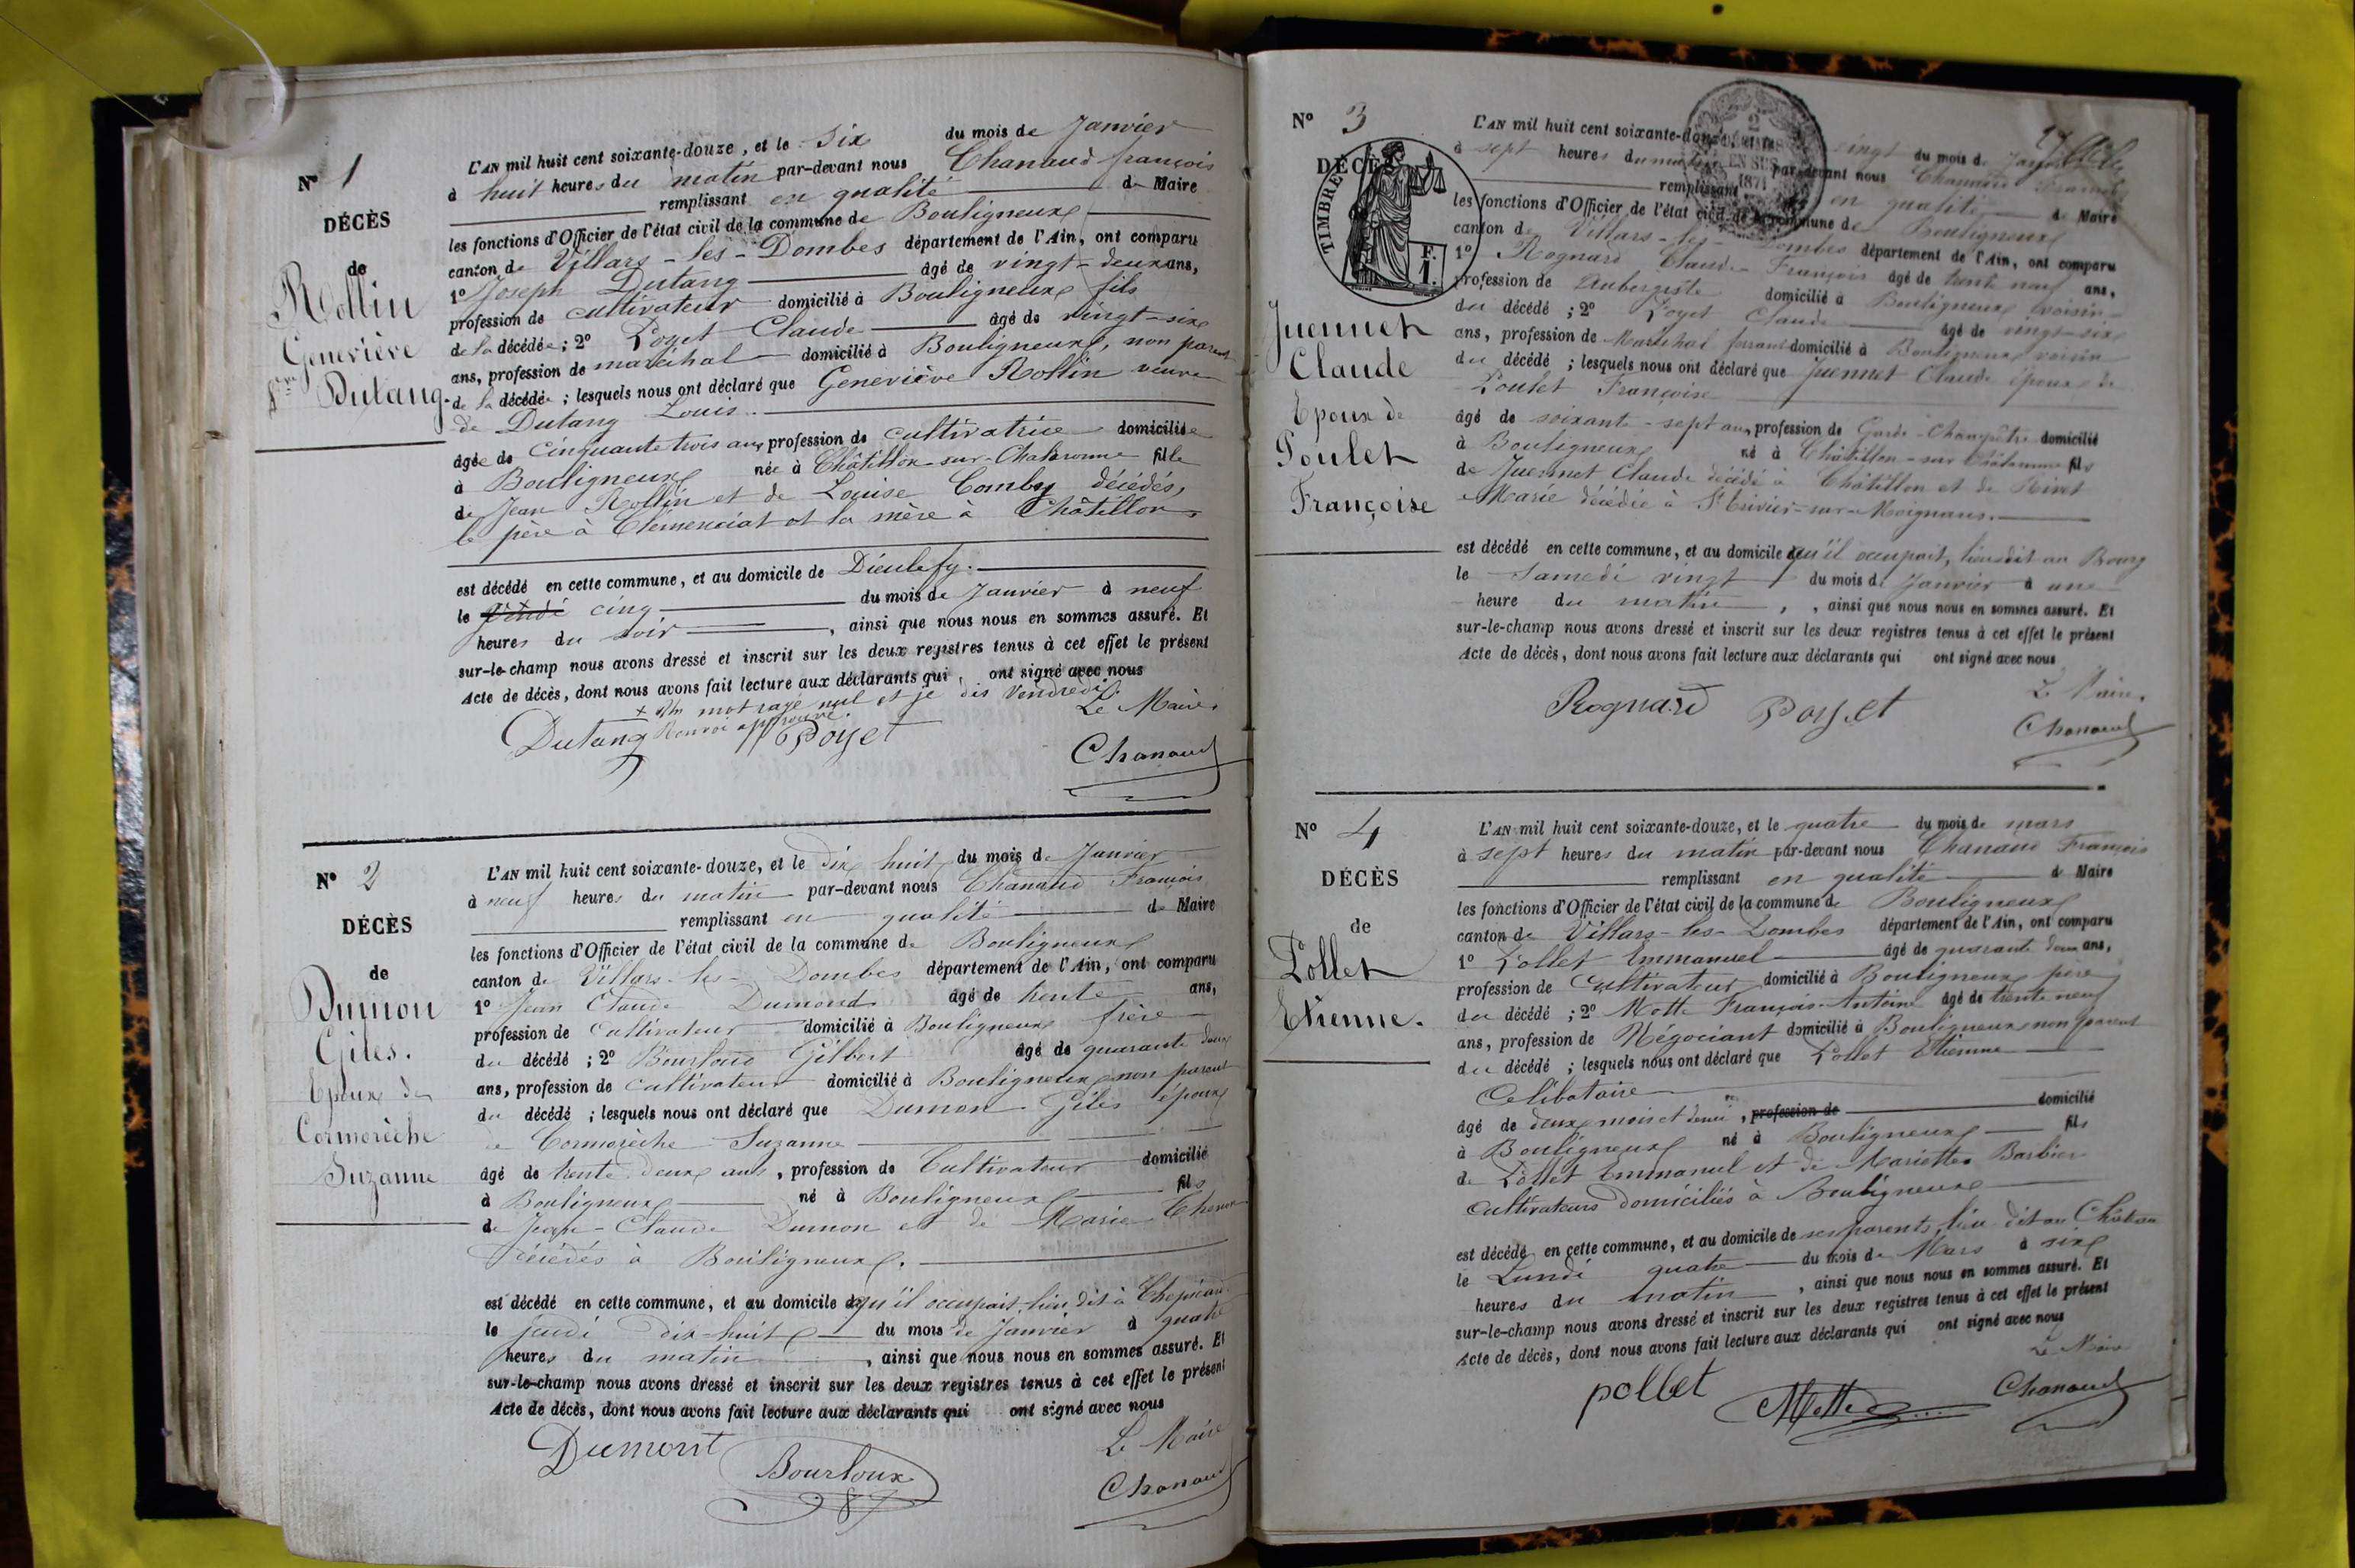 N° 1
DÉCÈS
de
Rollin
Geneviève
Vve
Dutang.
L'AN mil huit cent soixante-douze, et le Six du mois de Janvier
à huit heures du matin par-devant nous Chanaud françois
remplissant en qualité de Maire
les fonctions d'Officier de l'état civil de la commune de Bouligneux
canton de Villars-les-Dombes département de l'Ain, ont comparu
1° Joseph Dutang âgé de vingt-deux ans,
profession de cultivateur domicilié à Bouligneux fils
de la décédée; 2° Poyet Claude âgé de vingt-six
ans, profession de maréchal domicilié à Bouligneux, non parent
de la décédée; lesquels nous ont déclaré que Geneviève Rollin veuve
de Dutang Louis.
âgée de Cinquante trois ans, profession de cultivatrice domiciliée
à Bouligneux née à Châtillon-sur-Chalaronne fille
de Jean Rollin et de Louise Comby décédés,
le père à Clémenciat et la mère à Châtillon
est décédé en cette commune, et au domicile de Dieulefy.
le cinq du mois de Janvier à neuf
heures du soir, ainsi que nous nous en sommes assuré. Et
sur-le-champ nous avons dressé et inscrit sur les deux registres tenus à cet effet le présent
Acte de décès, dont nous avons fait lecture aux déclarants qui ont signé avec nous
+ Un mot rayé nul et je dis Vendredi.
Renvoi approuvé. Le Maire
Dutang Poyet Chanaud
N° 2
DÉCÈS
de
Dumon
Giles.
Epoux de
Cormorèche
Suzanne
L'AN mil huit cent soixante-douze, et le dix huit du mois de Janvier
à neuf heures du matin par-devant nous Chanaud François
remplissant en qualité de Maire
les fonctions d'Officier de l'état civil de la commune de Bouligneux
canton de Villars-les-Dombes département de l'Ain, ont comparu
1° Jean Claude Dumond âgé de trente ans,
profession de Cultivateur domicilié à Bouligneux frère
du décédé; 2° Bourloud Gilbert âgé de quarante deux
ans, profession de cultivateur domicilié à Bouligneux non parent
du décédé; lesquels nous ont déclaré que Dumon Giles époux
de Cormorèche Suzanne
âgé de trente deux ans, profession de Cultivateur domicilié
à Bouligneux né à Bouligneux fils
de Jean-Claude Dumon et de Marie
décédés à Bouligneux.
est décédé en cette commune, et au domicile qu'il occupait, lieu dit à
le jeudi dix-huit du mois de Janvier à quatre
heures du matin, ainsi que nous nous en sommes assuré. Et
sur-le-champ nous avons dressé et inscrit sur les deux registres tenus à cet effet le présent
Acte de décès, dont nous avons fait lecture aux déclarants qui ont signé avec nous
Le Maire
Dumont Bourloux Chanaud
N° 3
DÉCÈS
TIMBRE
F.
1.
2
EN SUS
1871
Juennet
Claude
Epoux de
Poulet
Françoise
L'AN mil huit cent soixante-douze, et le vingt du mois de Janvier
à sept heures du matin par-devant nous Chanaud François
remplissant en qualité de Maire
les fonctions d'Officier de l'état civil de la commune de Bouligneux
canton de Villars-les-Dombes département de l'Ain, ont comparu
1° Rognard Claude François âgé de trente neuf ans,
profession de Aubergiste domicilié à Bouligneux voisin
du décédé; 2° Poyet Claude âgé de vingt-six
ans, profession de Maréchal ferrant domicilié à Bouligneux voisin
du décédé; lesquels nous ont déclaré que Juennet Claude époux de
Poulet Françoise
âgé de soixante-sept ans, profession de Garde-Champêtre domicilié
à Bouligneux né à Châtillon-sur-Chalaronne fils
de Juennet Claude décédé à Châtillon et de Rivet
Marie décédée à St Trivier-sur-Moignans.
est décédé en cette commune, et au domicile qu'il occupait, lieu dit au Bourg
le Samedi vingt du mois de Janvier à une
heure du matin, ainsi que nous nous en sommes assuré. Et
sur-le-champ nous avons dressé et inscrit sur les deux registres tenus à cet effet le présent
Acte de décès, dont nous avons fait lecture aux déclarants qui ont signé avec nous
Le Maire.
Rognard Poyet Chanaud
N° 4
DÉCÈS
de
Pollet
Etienne.
L'AN mil huit cent soixante-douze, et le quatre du mois de mars
à sept heures du matin par-devant nous Chanaud François
remplissant en qualité de Maire
les fonctions d'Officier de l'état civil de la commune de Bouligneux
canton de Villars-les-Dombes département de l'Ain, ont comparu
1° Pollet Emmanuel âgé de quarante deux ans,
profession de Cultivateur domicilié à Bouligneux père
du décédé; 2° Motte François-Antoine âgé de trente neuf
ans, profession de Négociant domicilié à Bouligneux non parent
du décédé; lesquels nous ont déclaré que Pollet Etienne
Célibataire
âgé de deux mois et demi, profession de domicilié
à Bouligneux né à Bouligneux fils
de Pollet Emmanuel et de Mariette Barbier
Cultivateurs domiciliés à Bouligneux
est décédé en cette commune, et au domicile de ses parents, lieu dit au Château
le Lundi quatre du mois de Mars à six
heures du matin, ainsi que nous nous en sommes assuré. Et
sur-le-champ nous avons dressé et inscrit sur les deux registres tenus à cet effet le présent
Acte de décès, dont nous avons fait lecture aux déclarants qui ont signé avec nous
Le Maire
pollet Motte Chanaud